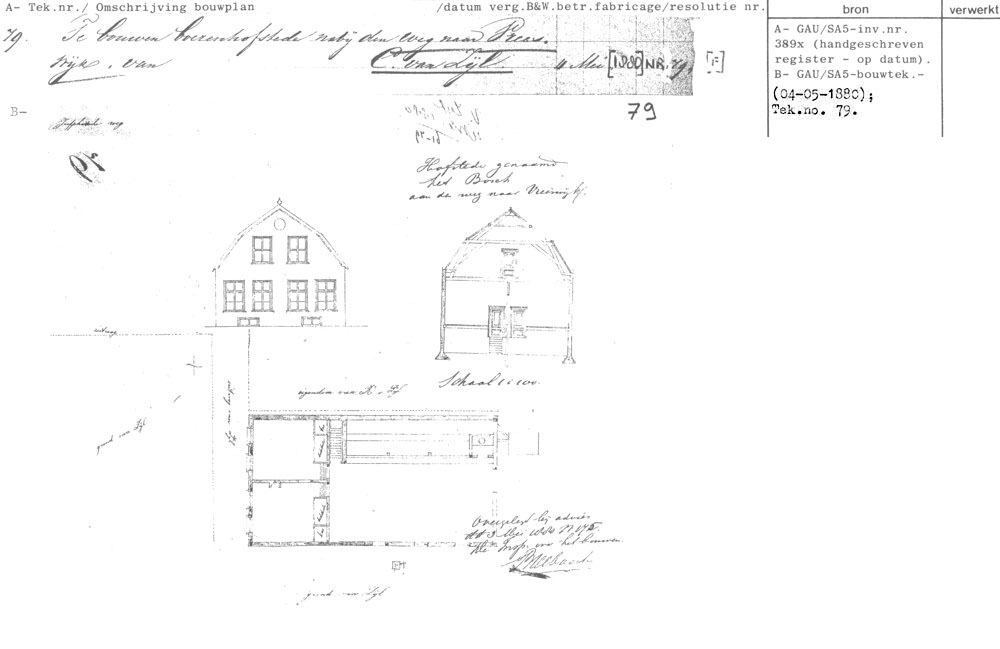 A- Tek.nr./ Omschrijving bouwplan /datum verg.B&W.betr.fabricage/resolutie nr. bron verwerkt
79. Te bouwen boerenhofstede nabij den weg naar Rees.
wijk. van C. van Zijl. 4 Mei [1880] NR. 79.
A- GAU/SA5-inv.nr.
389x (handgeschreven
register - op datum).
B- GAU/SA5-bouwtek.-
(04-05-1880);
Tek.no. 79.
B-
weg
79
79
Hofstede genaamd
het Bosch
aan de weg naar Vreeswijk.
Schaal 1 à 100.
eigendom van
grond van Zijl
Overgelegd bij advies
dd 3 Mei 1880 N 175.
De Insp. over het bouwen
grond van Zijl